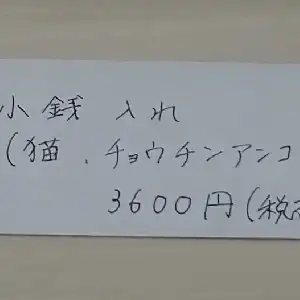 小銭入れ
(猫、チョウチンアンコ
3600円(税